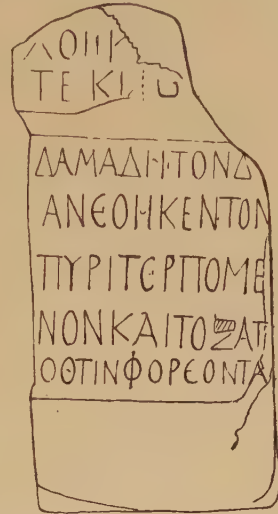 ΛΟΠΚ
ΤΕ ΚΙ
ΔΑΜΑΔΗΤΟΝΔ
ΑΝΕΘΗΚΕΝΤΟΝ
ΠΥΡΙΤΕΡΠΟΜΕ
ΝΟΝΚΑΙΤΟΞΑΤΙ
ΟΘΤΙΝΦΟΡΕΟΝΤΑ